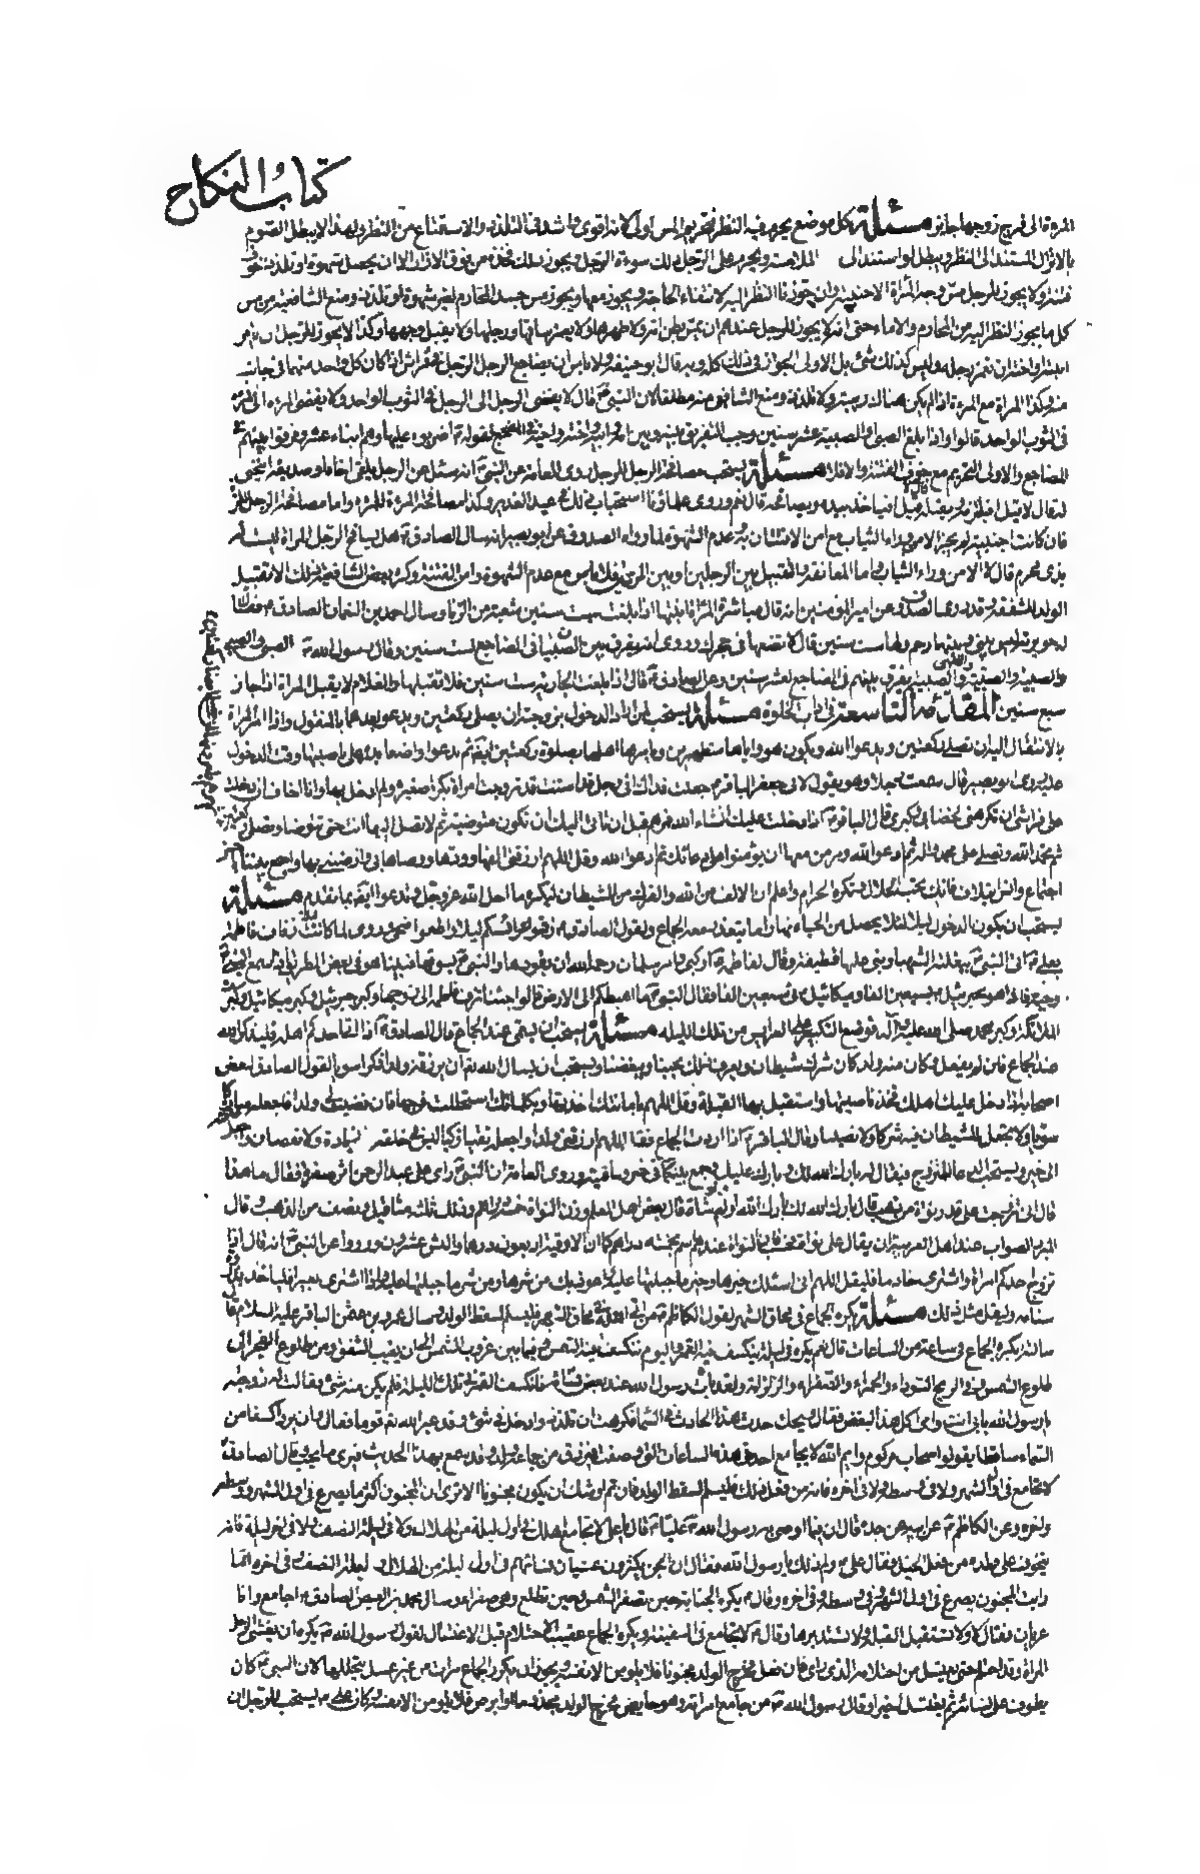 كتاب النكاح
المرءة الى فرج زوجها جايز مسئلة كل موضع يحرم فيه النظر فتحريم المس اولى لانه اقوى واشد فى التلذذ والاستمتاع من النظر ولهذا لا يبطل الصوم
بالانزال المستند الى النظر ويبطل لو استند الى الملامسة ويحرم على الرجل دلك سوءة الرجل ويجوز دلك فخذه من فوق الازار الا ان يحصل شهوة او تلذذ او خوف
فتنة ولا يجوز للرجل مس وجه المرأة الاجنبية وان جوزنا النظر اليه لانتفاء الحاجة ويجوز معها ويجوز مس جسد المحارم لغير شهوة او تلذذ ومنع الشافعية من مس
كل ما يجوز النظر اليه من المحارم والاماء حتى انه لا يجوز للرجل عندهم ان يمس بطن امه ولا ظهرها ولا يغمز ساقها ورجلها ولا يقبل وجهها وكذا لا يجوز للرجل ان يامر
ابنته او اخته ان تغمز رجله وليس كذلك شئ بل الاولى الجواز فى ذلك كله وبه قال ابو حنيفة ولا باس ان يضاجع الرجل الرجل فى فراش اذا كان كل واحد منهما فى جانب
منه وكذا المراة مع المرءة اذا لم يكن هناك ريبة ولا تلذذ ومنع الشافعى منه مطلقا لان النبى ص قال لا يفضى الرجل الى الرجل فى الثوب الواحد ولا يفضى المرءة الى المرءة
فى الثوب الواحد قالوا واذا بلغ الصبى او الصبية عشر سنين وجب التفريق بينه وبين امه وابيه واخته واخيه فى المضجع لقوله ع اضربوه عليها وهم ابناء عشر وفرقوا بينهم فى
المضاجع والاولى التحريم مع خوف الفتنة والا فلا مسئلة يستحب مصافحة الرجل للرجل روى العامة عن النبى ص انه سئل عن الرجل يلقى اخاه او صديقه اينحنى
له قال لا قيل افيلتزمه ويقبله قال لا قيل افياخذ بيده ويصافحه قال نعم وروى علماؤنا استحباب ذلك فى عيد الغدير وكذا مصافحة المرءة المرءة واما مصافحة الرجل المرءة
فان كانت اجنبية لم يجز الا من وراء الثياب مع امن الافتتان به وعدم الشهوة لما رواه الصدوق عن ابى بصير انه سال الصادق ع هل يصافح الرجل المراة ليست له
بذى محرم قال لا الا من وراء الثياب واما المعانقة والتقبيل بين الرجلين او بين المرءتين فلا باس مع عدم الشهوة وامن الفتنة وكره بعض الشافعية ذلك الا تقبيل
الولد للشفقة وقد روى الصدوق عن امير المؤمنين انه قال مباشرة المراة ابنتها اذا بلغت ست سنين شعبة من الزنا وسال احمد بن النعمان الصادق ع فقال
له جويرية ليس بينى وبينها رحم ولها ست سنين قال لا تضعها فى حجرك وروى انه يفرق بين الصبيان فى المضاجع لست سنين وقال رسول الله ص الصبى والصبى
والصبية والصبية والصبى والصبية يفرق بينهم فى المضاجع لعشر سنين وعن الصادق ع قال اذا بلغت الجارية ست سنين فلا تقبلها والغلام لا يقبل المراة اذا جاز
سبع سنين المقدمة التاسعة فى اداب الخلوة مسئلة يستحب لمن اراد الدخول بزوجته ان يصلى ركعتين ويدعو بعدهما بالمنقول واذا امر المراة
بالانتقال اليه ان تصلى ركعتين ويدعوا الله ويكون هو واياها متطهرين ويامرها اهلها بصلوة ركعتين ايضا ثم يدعو واضعا يده على ناصيتها وقت الدخول
عليه روى ابو بصير قال سمعت رجلا وهو يقول لابى جعفر الباقر ع جعلت فداك انى رجل قد اسننت وقد تزوجت امراة بكرا صغيرة ولم ادخل بها وانا اخاف ان دخلت
على فراشى ان تكرهنى لخضابى وكبرى قال الباقر ع اذا دخلت عليك انشاء الله فمرهم قبل ان تاتى اليك ان تكون متوضية ثم لا تصل اليها انت حتى توضا وتصلى ركعتين
ثم مجد الله وصل على محمد واله ثم ادعو الله ومر من معها ان يؤمنوا على دعائك ثم ادعوا الله وقل اللهم ارزقنى الفها وودها ورضاها بى وارضنى بها واجمع بيننا باحسن
اجتماع وانس ايتلاف فانك تحب الحلال وتكره الحرام واعلم ان الالف من الله والفرك من الشيطان ليكره ما احل الله عز وجل وتدعو ايضا بما تقدم مسئلة
يستحب ان يكون الدخول ليلا لئلا يحصل من الحياء نهارا ما يتعذر معه الجماع ولقول الصادق ع زفوا عرائسكم ليلا واطعموا ضحى وروى لما كانت ليلة زفاف فاطمة
بعلى ع اتى النبى ص ببغلته الشهباء وثنى عليها قطيفة وقال لفاطمة ع اركبى وامر سلمان رحمه الله ان يقودها والنبى ص يسوقها فبينا هو فى بعض الطريق اذ سمع النبى ص
وجبة فاذا هو بجبرئيل ع فى سبعين الفا وميكائيل فى سبعين الفا فقال النبى ص ما اهبطكم الى الارض قالوا جئنا نزف فاطمة الى زوجها وكبر جبرئيل وكبر ميكائيل وكبرت
الملائكة وكبر محمد صلى الله عليه واله فوقع التكبير على العرايس من تلك الليلة مسئلة يستحب ان يسمى عند الجماع قال الصادق ع اذا اتى احدكم اهله فليذكر الله
عند الجماع فان لم يفعل وكان منه ولد كان شرك شيطان ويعرف ذلك بحبنا وبغضنا ويستحب ان يسال الله تعالى ان يرزقه ولدا ذكرا سويا لقول الصادق ع لبعض
اصحابه اذا دخل عليك اهلك فخذ بناصيتها واستقبل بها القبلة وقل اللهم بامانتك اخذتها وبكلماتك استحللت فرجها فان قضيت لى ولدا فاجعله مباركا
سويا ولا تجعل للشيطان فيه شركا ولا نصيبا وقال الباقر ع اذا اردت الجماع فقل اللهم ارزقنى ولدا واجعله تقيا زكيا ليس فى خلقه زيادة ولا نقصان واجعل عاقبته
الى خير ويستحب الدعاء للمتزوج فيقال له بارك الله لك وبارك عليك وجمع بينكما فى خير وعافية وروى العامة ان النبى ص راى على عبد الرحمن اثر صفرة فقال ما هذا
قال انى تزوجت على قدر نواة من ذهب قال بارك الله لك اولم ولو بشاة قال بعض اهل العلم وزن النواة خمسة دراهم وذلك ثلثة مثاقيل ونصف من الذهب وقال
المبرد الصواب عند اهل العربية ان يقال على نواة فحسب فان النواة عندهم اسم لخمسة دراهم كما ان الاوقية اربعون درهما والنش عشرون ورووا عن النبى ص انه قال اذا
تزوج احدكم امراة او اشترى خادما فليقل اللهم انى اسئلك خيرها وخير ما جبلتها عليه واعوذ بك من شرها ومن شر ما جبلتها عليه واذا اشترى بعيرا فلياخذ بذروة
سنامه وليقل مثل ذلك مسئلة يكره الجماع فى محاق الشهر لقول الكاظم ع من اتى اهله فى محاق الشهر فليسلم لسقط الولد وسال عمرو بن عثمن الباقر عليه السلام قال
سالته ايكره الجماع فى ساعة من الساعات قال نعم يكره فى ليلة ينكسف فيها القمر واليوم الذى تنكسف فيه الشمس وفيما بين غروب الشمس الى ان يغيب الشفق ومن طلوع الفجر الى
طلوع الشمس وفى الريح السوداء والحمراء والصفراء والزلزلة ولقد بات رسول الله ص عند بعض نسائه فانكسف القمر فى تلك الليلة فلم يكن منه شئ فقالت له زوجته
يا رسول الله بابى انت وامى اكل هذا البغض فقال ويحك حدث هذا الحادث فى السماء فكرهت ان اتلذذ وادخل فى شئ وقد عير الله تعالى قوما فقال وان يروا كسفا من
السماء ساقطا يقولوا سحاب مركوم وايم الله لا يجامع احد فى هذه الساعات التى وصفت فيرزق من جماعه ولدا وقد سمع بهذا الحديث فيرى ما يحب وقال الصادق ع
لا تجامع فى اول الشهر ولا فى وسطه ولا فى اخره فانه من فعل ذلك فليسلم لسقط الولد فان تم اوشك ان يكون مجنونا الا ترى ان المجنون اكثر ما يصرع فى اول الشهر ووسطه
واخره وعن الكاظم ع عن ابيه عن جده قال ان فيما اوصى به رسول الله ص عليا ع قال يا على لا تجامع اهلك فى اول ليلة من الهلال ولا فى ليلة النصف ولا فى اخر ليلة فانه
يتخوف على ولد من فعل الخبل فقال على ع ولم ذلك يا رسول الله فقال ان الجن يكثرون غشيان نسائهم فى اول ليلة من الهلال وليلة النصف وفى اخر ليلة اما
رايت المجنون يصرع فى اول الشهر وفى وسطه وفى اخره وقال ع يكره الجنابة حين تصفر الشمس وحين تطلع وهى صفراء وسال محمد بن العيص الصادق ع اجامع وانا
عريان فقال لا ولا تستقبل القبلة ولا تستدبرها وقال ع لا تجامع فى السفينة ويكره الجماع عقيب الاحتلام قبل الاغتسال لقول رسول الله ص يكره ان يغشى الرجل
المراة وقد احتلم حتى يغتسل من احتلامه الذى راى فان فعل فخرج الولد مجنونا فلا يلومن الا نفسه ويجوز ان يكرر الجماع مرات من غير غسل يتخللها لان النبى ص كان
يطوف على نسائه ثم يغتسل اخيرا وقال رسول الله ص من جامع امراته وهى حايض فخرج الولد مجذوما او ابرص فلا يلومن الا نفسه مسئلة يستحب للرجل ان